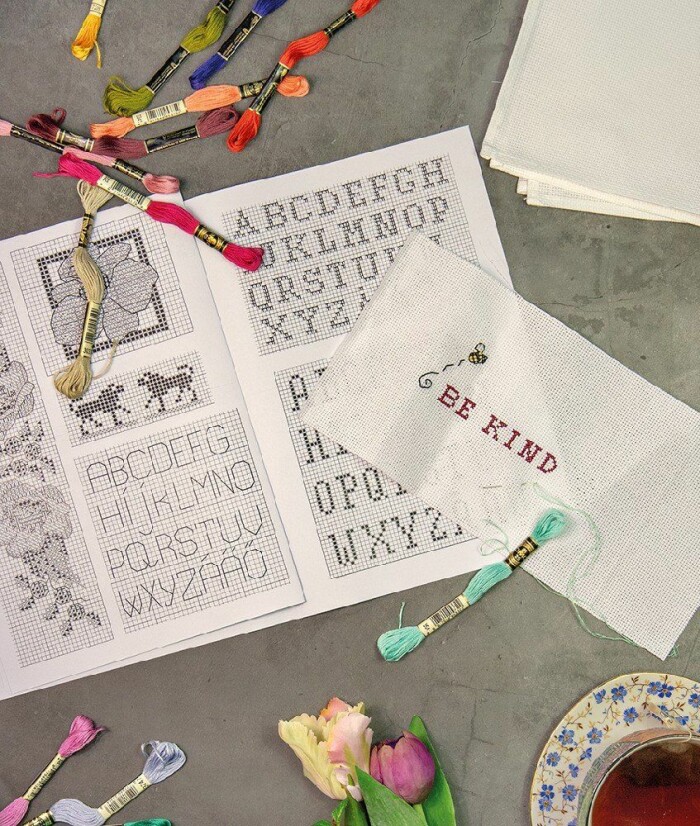 ABCDEFGH
KLMNOP
QRSTU
XYZ
BE KIND
ABCDEFG
HIJKLMNO
PQRSTUV
WXYZ
A
H
OPQ
WXYZ